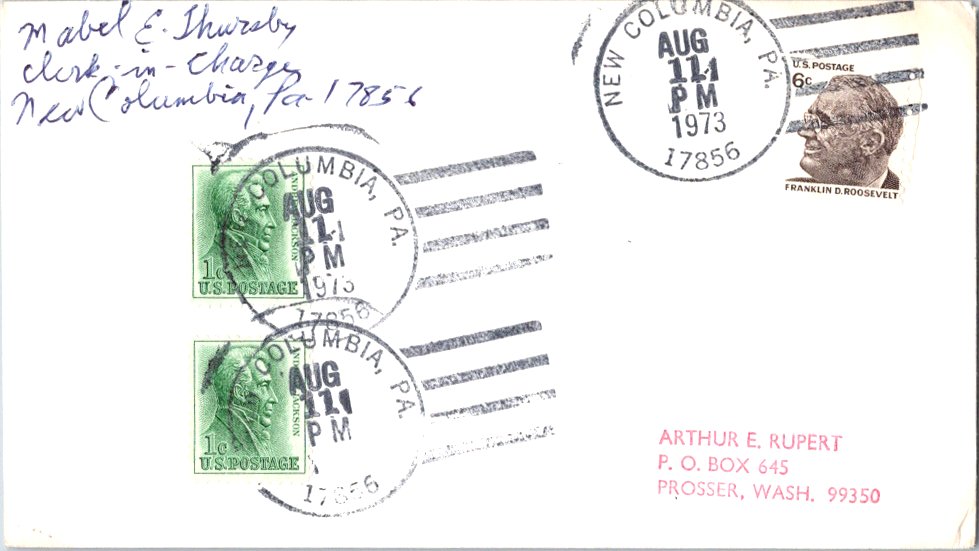 Mabel E. Thursby
Clerk-in-Charge
New Columbia, Pa 17856
NEW COLUMBIA, PA.
AUG
11
PM
1973
17856
U.S. POSTAGE
6c
FRANKLIN D. ROOSEVELT
COLUMBIA, PA.
AUG
11
PM
1973
17856
JACKSON
1c
U.S. POSTAGE
COLUMBIA, PA.
AUG
11
PM
17856
JACKSON
1c
U.S. POSTAGE
ARTHUR E. RUPERT
P. O. BOX 645
PROSSER, WASH. 99350